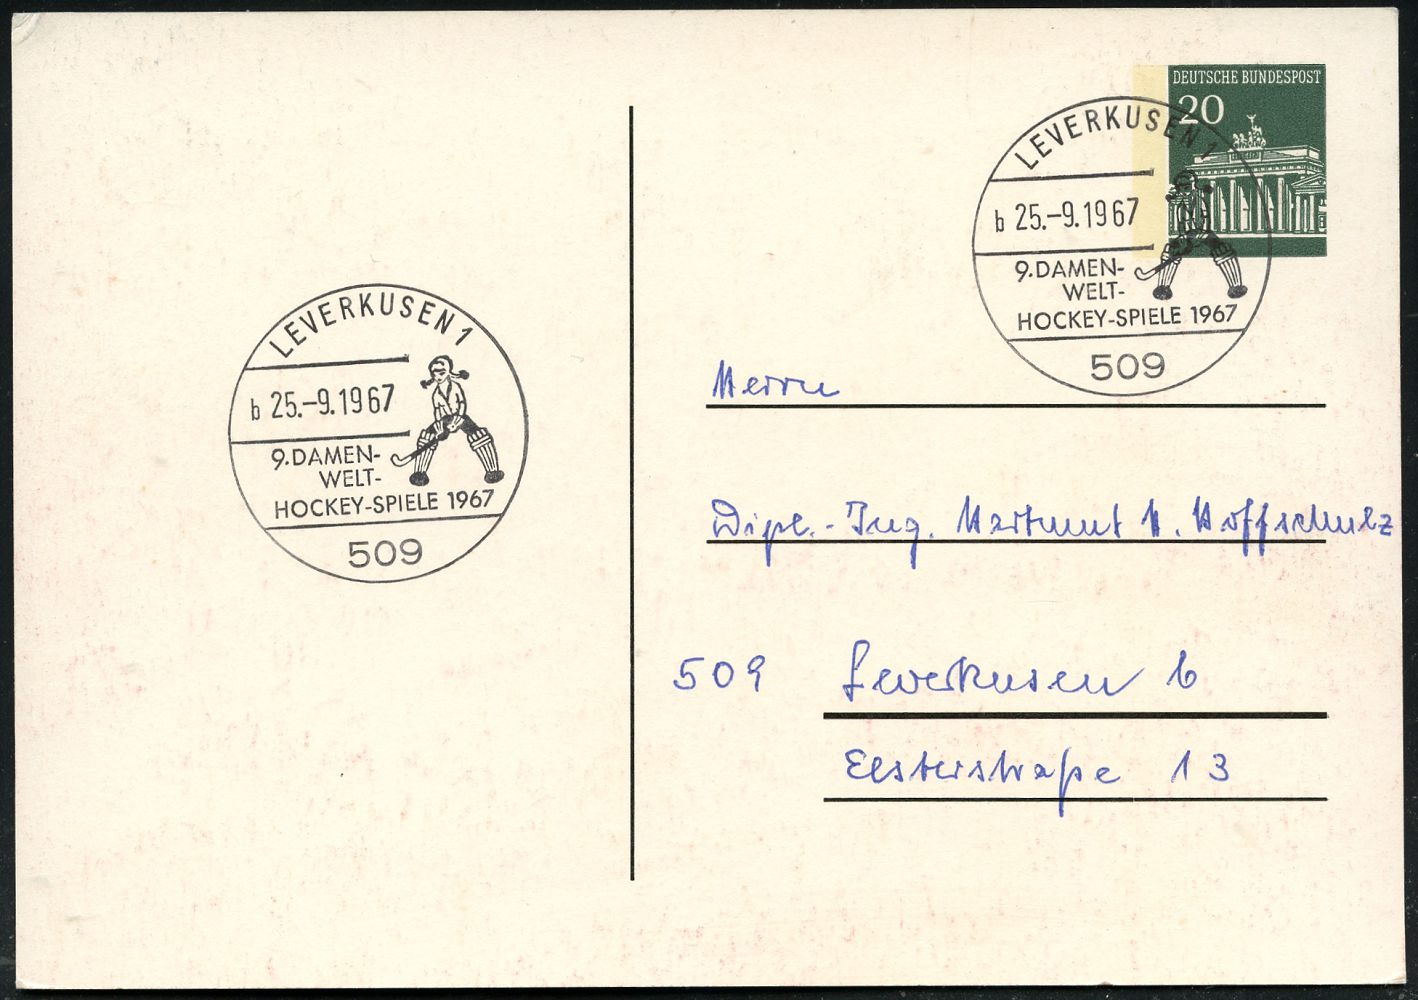 LEVERKUSEN 1
b 25.-9.1967
9.DAMEN-
WELT-
HOCKEY-SPIELE 1967
509
DEUTSCHE BUNDESPOST
20
LEVERKUSEN 1
b 25.-9.1967
9.DAMEN-
WELT-
HOCKEY-SPIELE 1967
509
Herrn
Dipl.-Ing. Hartmut H. Hoffschulz
509 Leverkusen 6
Elsterstraße 13